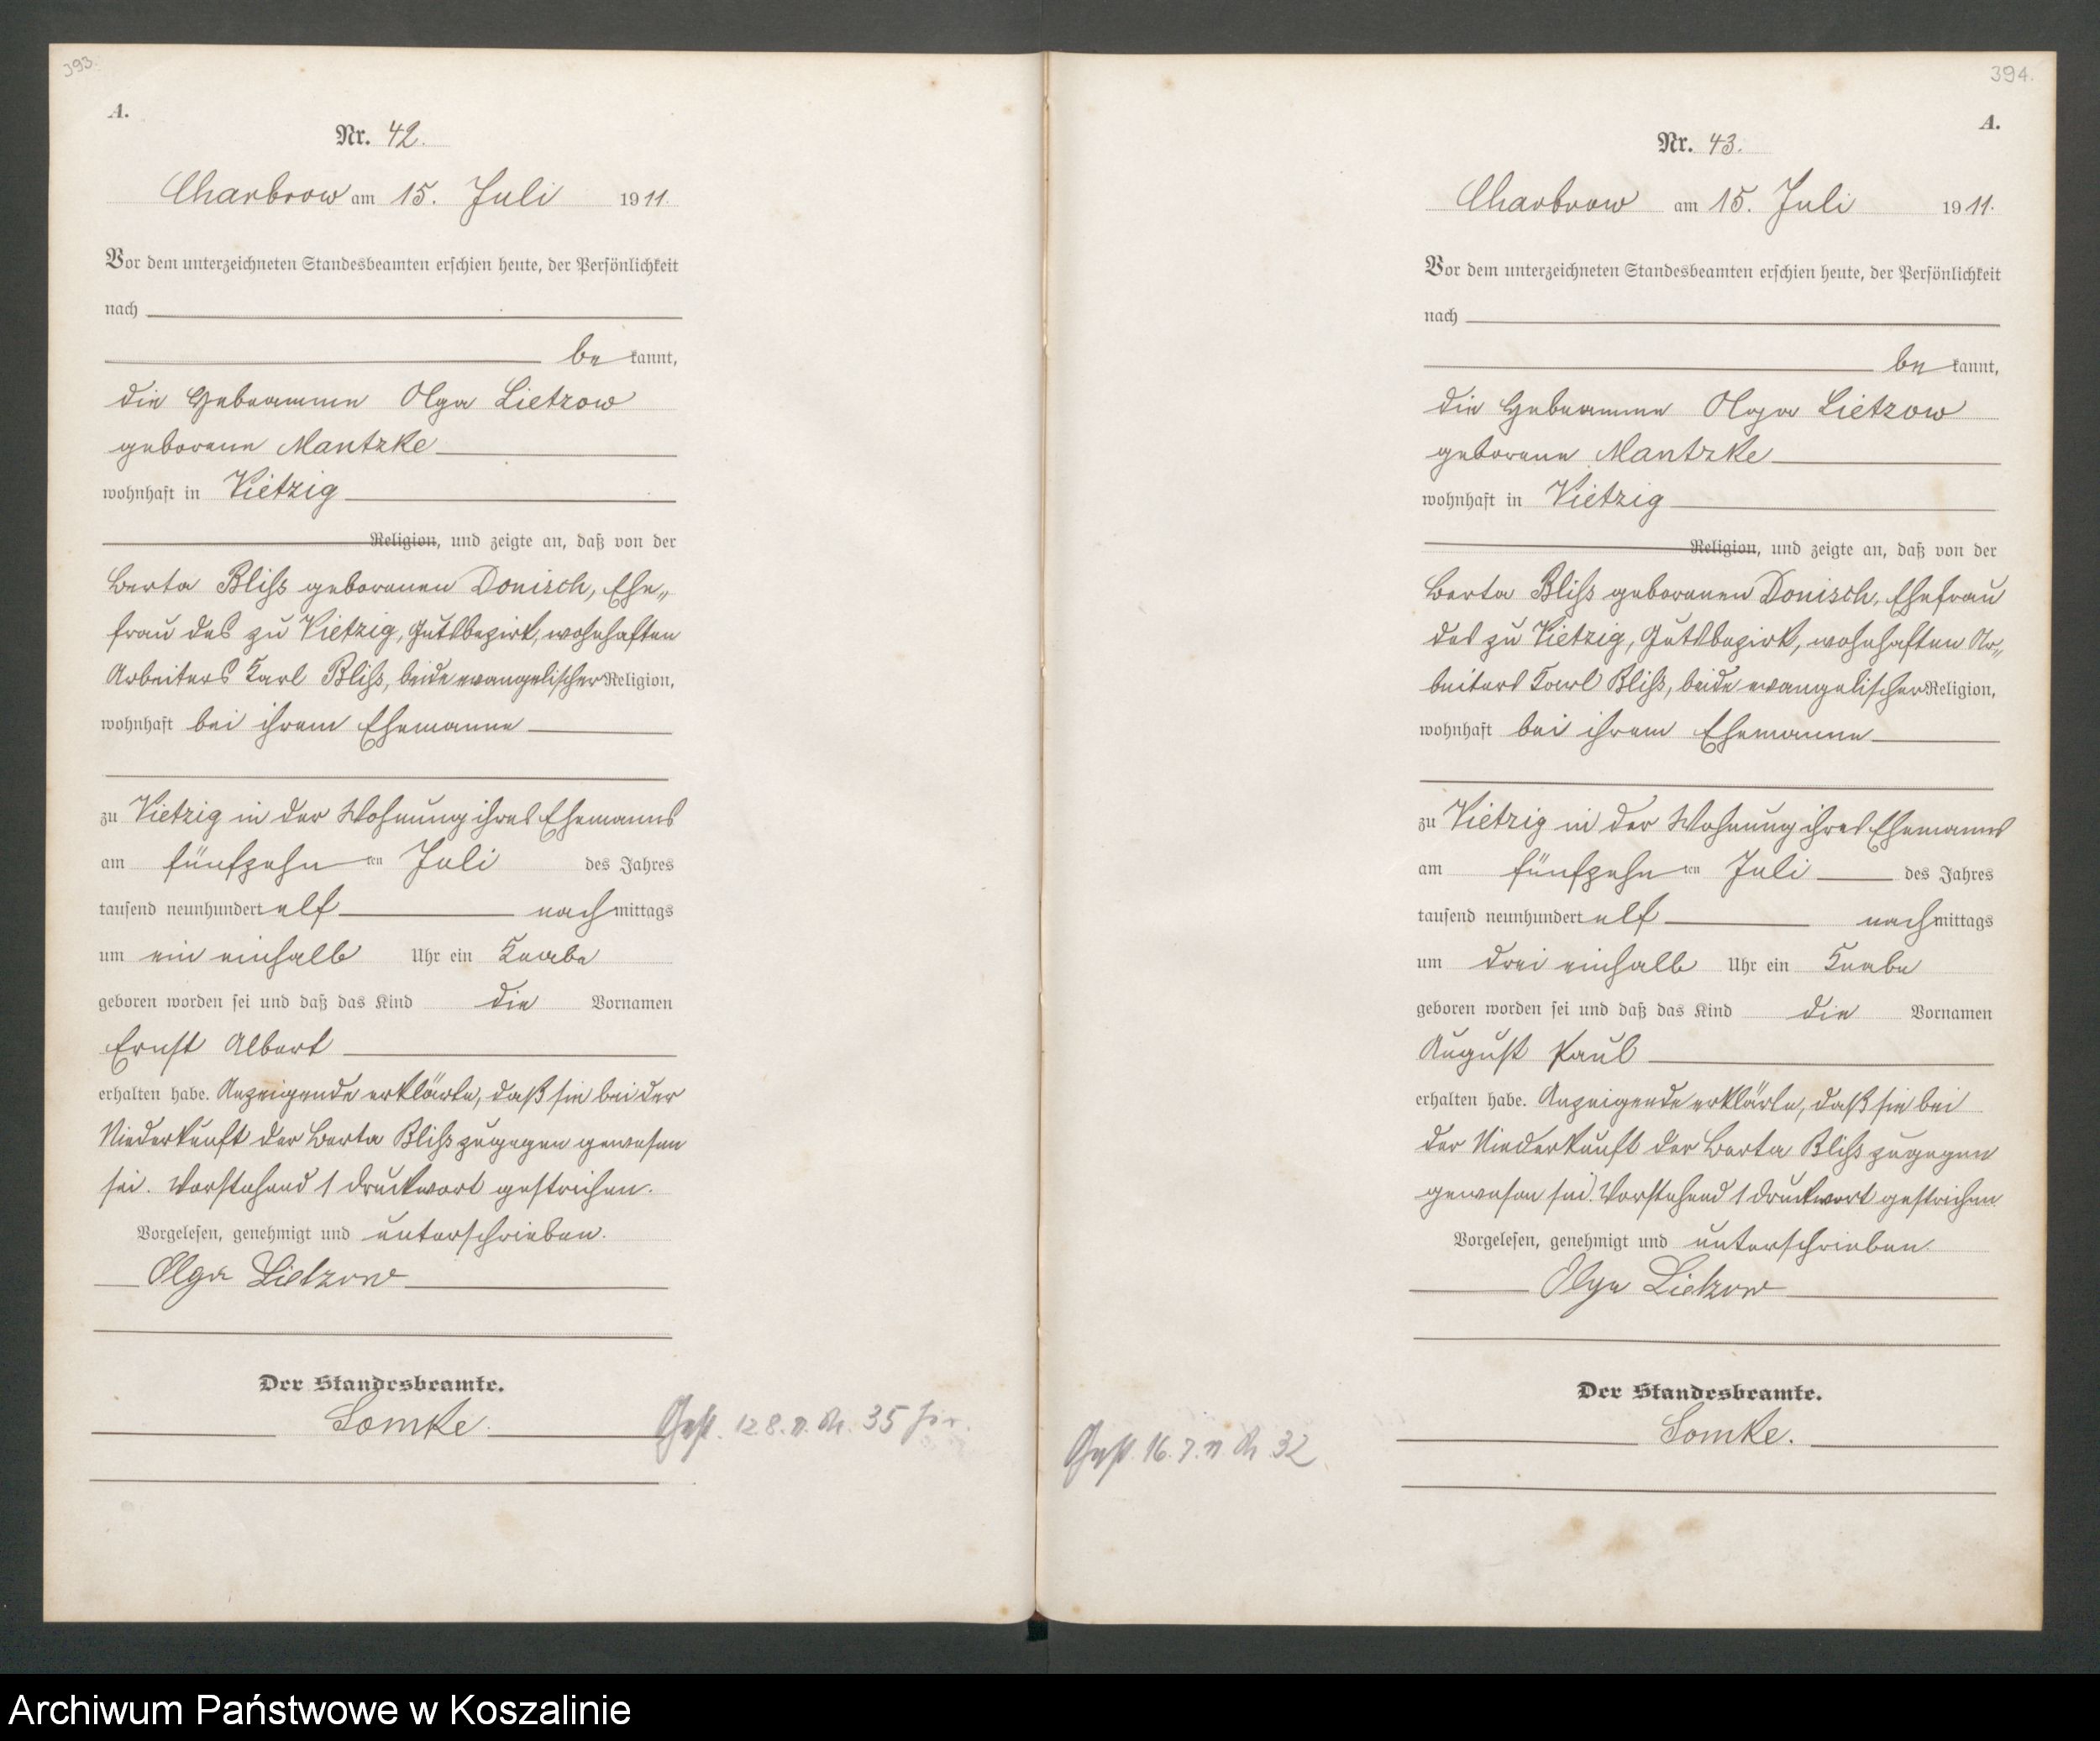 393.
A.
Nr. 42.
Charbrow am 15. Juli 1911.
Vor dem unterzeichneten Standesbeamten erschien heute, der Persönlichkeit
nach
be kannt,
die Hebeamme Olga Lietzow
geborene Mantzke
wohnhaft in Vietzig
Religion, und zeigte an, daß von der
Berta Bliß geborenen Donisch, Ehe„
frau des zu Vietzig, Gutsbezirk, wohnhaften
Arbeiters Karl Bliß, beide evangelischer Religion,
wohnhaft bei ihrem Ehemanne
zu Vietzig in der Wohnung ihres Ehemanns
am fünfzehn ten Juli des Jahres
tausend neunhundert elf nach mittags
um ein einhalb Uhr ein Knabe
geboren worden sei und daß das Kind die Vornamen
Ernst Albert
erhalten habe. Anzeigende erklärte, daß sie bei der
Niederkunft der Berta Bliß zugegen gewesen
sei. Vorstehend 1 Druckwort gestrichen.
Vorgelesen, genehmigt und unterschrieben.
Olga Lietzow
Der Standesbeamte.
Lomke.
Gest. 12.8. n. R. 35
394.
A.
Nr. 43.
Charbrow am 15. Juli 1911.
Vor dem unterzeichneten Standesbeamten erschien heute, der Persönlichkeit
nach
be kannt,
die Hebeamme Olga Lietzow
geborene Mantzke
wohnhaft in Vietzig
Religion, und zeigte an, daß von der
Berta Bliß geborenen Donisch, Ehefrau
des zu Vietzig, Gutsbezirk, wohnhaften Ar„
beiters Karl Bliß, beide evangelischer Religion,
wohnhaft bei ihrem Ehemanne
zu Vietzig in der Wohnung ihres Ehemanns
am fünfzehn ten Juli des Jahres
tausend neunhundert elf nach mittags
um drei einhalb Uhr ein Knabe
geboren worden sei und daß das Kind die Vornamen
August Paul
erhalten habe. Anzeigende erklärte, daß sie bei
der Niederkunft der Berta Bliß zugegen
gewesen sei. Vorstehend 1 Druckwort gestrichen
Vorgelesen, genehmigt und unterschrieben.
Olga Lietzow
Der Standesbeamte.
Lomke.
Gest. 16.7. n R 32
Archiwum Państwowe w Koszalinie